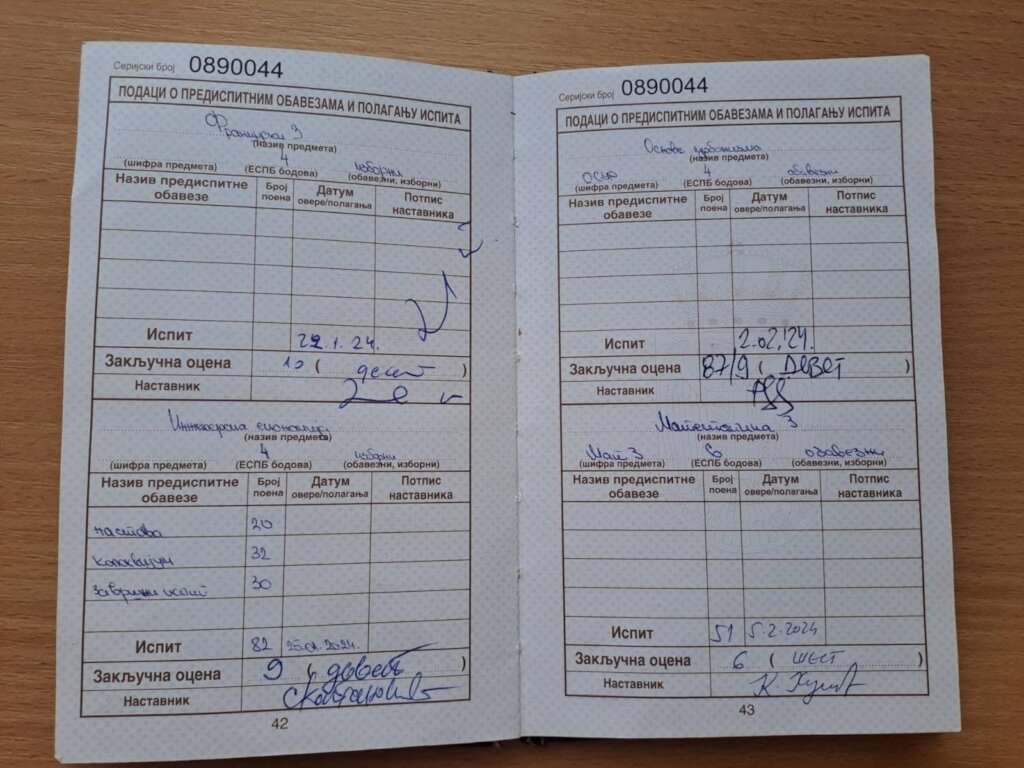 Серијски број 0890044
ПОДАЦИ О ПРЕДИСПИТНИМ ОБАВЕЗАМА И ПОЛАГАЊУ ИСПИТА
Француски 3
(назив предмета)
4 изборни
(шифра предмета) (ЕСПБ бодова) (обавезни, изборни)
Назив предиспитне обавезе Број поена Датум овере/полагања Потпис наставника
Испит 22.1.24.
Закључна оцена 10 ( десет )
Наставник
Инжењерска економија
(назив предмета)
4 изборни
(шифра предмета) (ЕСПБ бодова) (обавезни, изборни)
Назив предиспитне обавезе Број поена Датум овере/полагања Потпис наставника
настава 20
колоквијум 32
завршни испит 30
Испит 82 25.01.2024.
Закључна оцена 9 ( девет )
Наставник
42
Серијски број 0890044
ПОДАЦИ О ПРЕДИСПИТНИМ ОБАВЕЗАМА И ПОЛАГАЊУ ИСПИТА
Основе урбанизма
(назив предмета)
ОСУР 4 обавезни
(шифра предмета) (ЕСПБ бодова) (обавезни, изборни)
Назив предиспитне обавезе Број поена Датум овере/полагања Потпис наставника
Испит 2.02.'24.
Закључна оцена 87/9 ( ДЕВЕТ )
Наставник
Математика 3
(назив предмета)
Мат 3 6 обавезни
(шифра предмета) (ЕСПБ бодова) (обавезни, изборни)
Назив предиспитне обавезе Број поена Датум овере/полагања Потпис наставника
Испит 51 5.2.2024.
Закључна оцена 6 ( ШЕСТ )
Наставник
43